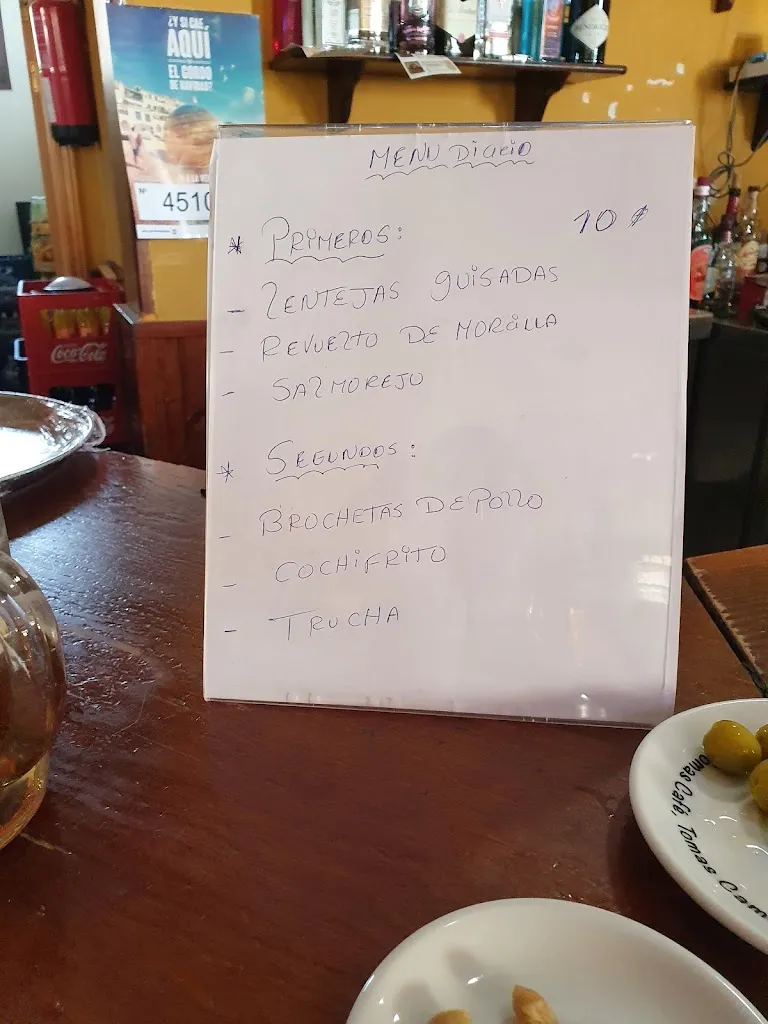 ¿Y SI CAE
AQUÍ
EL GORDO
DE NAVIDAD?
Nº
4510
Coca-Cola
MENU Diario
* PRIMEROS: 10 €
- LENTEJAS GUISADAS
- REVUELTO DE MORCILLA
- SALMOREJO
* SEGUNDOS:
- BROCHETAS DE POLLO
- COCHIFRITO
- TRUCHA
omas Café, Tomas Com